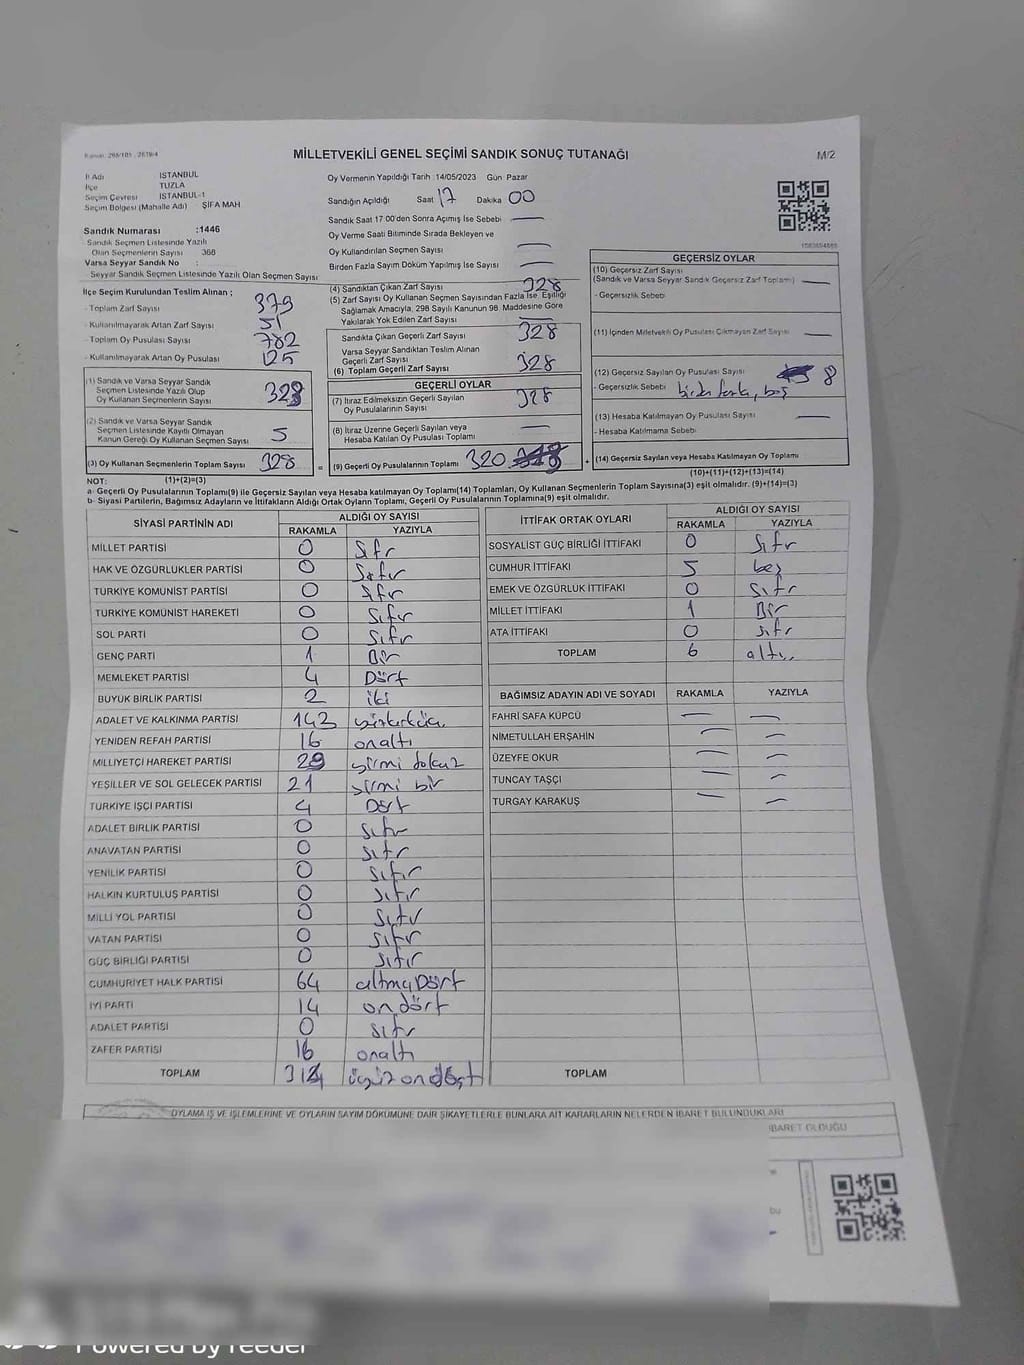 MİLLETVEKİLİ GENEL SEÇİMİ SANDIK SONUÇ TUTANAĞI
M/2
İl Adı İSTANBUL
İlçe TUZLA
Seçim Çevresi İSTANBUL-1
Seçim Bölgesi (Mahalle Adı) ŞİFA MAH
Sandık Numarası :1446
Sandık Seçmen Listesinde Yazılı
Olan Seçmenlerin Sayısı 366
Varsa Seyyar Sandık No :
Seyyar Sandık Seçmen Listesinde Yazılı Olan Seçmen Sayısı
Oy Vermenin Yapıldığı Tarih :14/05/2023 Gün Pazar
Sandığın Açıldığı Saat 17 Dakika 00
Sandık Saat 17:00'den Sonra Açımış İse Sebebi —
Oy Verme Saati Bitiminde Sırada Bekleyen ve
Oy Kullandırılan Seçmen Sayısı —
Birden Fazla Sayım Döküm Yapılmış İse Sayısı —
İlçe Seçim Kurulundan Teslim Alınan ;
- Toplam Zarf Sayısı 379
- Kullanılmayarak Artan Zarf Sayısı 51
- Toplam Oy Pusulası Sayısı
- Kullanılmayarak Artan Oy Pusulası 125
(1) Sandık ve Varsa Seyyar Sandık
Seçmen Listesinde Yazılı Olup
Oy Kullanan Seçmenlerin Sayısı
(2) Sandık ve Varsa Seyyar Sandık
Seçmen Listesinde Kayıtlı Olmayan
Kanun Gereği Oy Kullanan Seçmen Sayısı 5
(3) Oy Kullanan Seçmenlerin Toplam Sayısı 328
(4) Sandıktan Çıkan Zarf Sayısı 328
(5) Zarf Sayısı Oy Kullanan Seçmen Sayısından Fazla İse, Eşitliği
Sağlamak Amacıyla, 298 Sayılı Kanunun 98. Maddesine Göre
Yakılarak Yok Edilen Zarf Sayısı —
Sandıkta Çıkan Geçerli Zarf Sayısı 328
Varsa Seyyar Sandıktan Teslim Alınan
Geçerli Zarf Sayısı
(6) Toplam Geçerli Zarf Sayısı 328
GEÇERLİ OYLAR
(7) İtiraz Edilmeksizin Geçerli Sayılan
Oy Pusulalarının Sayısı 328
(8) İtiraz Üzerine Geçerli Sayılan veya
Hesaba Katılan Oy Pusulası Toplamı —
= (9) Geçerli Oy Pusulalarının Toplamı 320
GEÇERSİZ OYLAR
(10) Geçersiz Zarf Sayısı
(Sandık ve Varsa Seyyar Sandık Geçersiz Zarf Toplamı) —
- Geçersizlik Sebebi
(11) İçinden Milletvekili Oy Pusulası Çıkmayan Zarf Sayısı —
(12) Geçersiz Sayılan Oy Pusulası Sayısı 8
- Geçersizlik Sebebi birden fazla, boş
(13) Hesaba Katılmayan Oy Pusulası Sayısı —
- Hesaba Katılmama Sebebi
+ (14) Geçersiz Sayılan veya Hesaba Katılmayan Oy Toplamı
NOT: (1)+(2)=(3)
(10)+(11)+(12)+(13)=(14)
a- Geçerli Oy Pusulalarının Toplamı(9) ile Geçersiz Sayılan veya Hesaba katılmayan Oy Toplamı(14) Toplamları, Oy Kullanan Seçmenlerin Toplam Sayısına(3) eşit olmalıdır. (9)+(14)=(3)
b- Siyasi Partilerin, Bağımsız Adayların ve İttifakların Aldığı Ortak Oyların Toplamı, Geçerli Oy Pusulalarının Toplamına(9) eşit olmalıdır.
SİYASİ PARTİNİN ADI ALDIĞI OY SAYISI
RAKAMLA YAZIYLA
MİLLET PARTİSİ 0 Sıfır
HAK VE ÖZGÜRLÜKLER PARTİSİ 0 Sıfır
TÜRKİYE KOMÜNİST PARTİSİ 0 Sıfır
TÜRKİYE KOMÜNİST HAREKETİ 0 Sıfır
SOL PARTİ 0 Sıfır
GENÇ PARTİ 1 Bir
MEMLEKET PARTİSİ 4 Dört
BÜYÜK BİRLİK PARTİSİ 2 iki
ADALET VE KALKINMA PARTİSİ 143 yüzkırküç
YENİDEN REFAH PARTİSİ 16 onaltı
MİLLİYETÇİ HAREKET PARTİSİ 29 yirmi dokuz
YEŞİLLER VE SOL GELECEK PARTİSİ 21 yirmi bir
TÜRKİYE İŞÇİ PARTİSİ 4 Dört
ADALET BİRLİK PARTİSİ 0 sıfır
ANAVATAN PARTİSİ 0 sıfır
YENİLİK PARTİSİ 0 sıfır
HALKIN KURTULUŞ PARTİSİ 0 sıfır
MİLLİ YOL PARTİSİ 0 sıfır
VATAN PARTİSİ 0 sıfır
GÜÇ BİRLİĞİ PARTİSİ 0 sıfır
CUMHURİYET HALK PARTİSİ 64 altmışDört
İYİ PARTİ 14 on dört
ADALET PARTİSİ 0 sıfır
ZAFER PARTİSİ 16 onaltı
TOPLAM 314 üçyüz ondört
İTTİFAK ORTAK OYLARI ALDIĞI OY SAYISI
RAKAMLA YAZIYLA
SOSYALİST GÜÇ BİRLİĞİ İTTİFAKI 0 Sıfır
CUMHUR İTTİFAKI 5 beş
EMEK VE ÖZGÜRLÜK İTTİFAKI 0 Sıfır
MİLLET İTTİFAKI 1 Bir
ATA İTTİFAKI 0 sıfır
TOPLAM 6 altı
BAĞIMSIZ ADAYIN ADI VE SOYADI RAKAMLA YAZIYLA
FAHRİ SAFA KÜPCÜ — —
NİMETULLAH ERŞAHİN — —
ÜZEYFE OKUR — —
TUNCAY TAŞÇI — —
TURGAY KARAKUŞ — —
TOPLAM
OYLAMA İŞ VE İŞLEMLERİNE VE OYLARIN SAYIM DÖKÜMÜNE DAİR ŞİKAYETLERLE BUNLARA AİT KARARLARIN NELERDEN İBARET BULUNDUKLARI
İBARET OLDUĞU
Powered by reeder